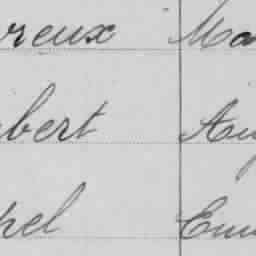 reux Ma
bert Au
pel Em